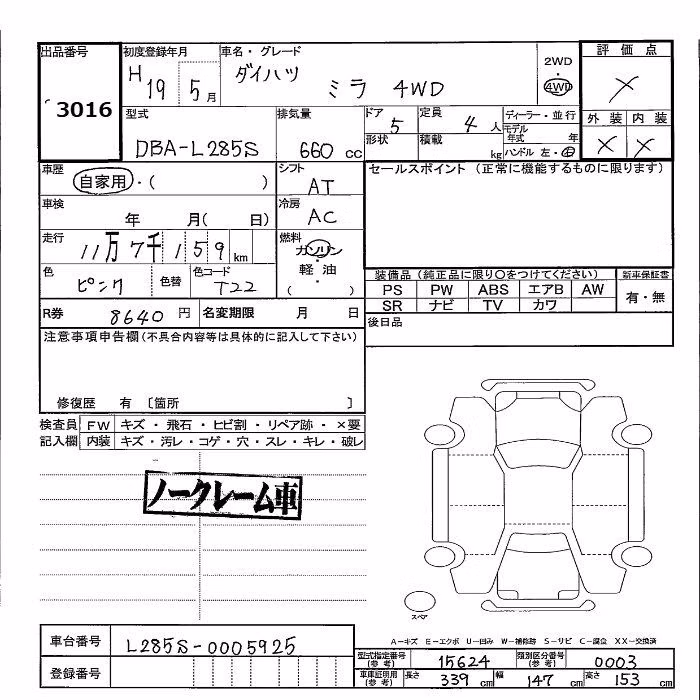 出品番号 初度登録年月 車名・グレード 2WD 評価点
3016 H 19 5月 ダイハツ ミラ 4WD 4WD X
型式 排気量 ドア 定員 ディーラー・並行 外装 内装
DBA-L285S 660 cc 5 4 人 モデル年式 年 X X
形状 積載 kg ハンドル 左・右
車歴 シフト セールスポイント (正常に機能するものに限ります)
自家用・( ) AT
車検 冷房
年 月( 日) AC
走行 燃料
11万7千159km ガソリン・軽油・( )
色 色替 色コード 装備品(純正品に限り○をつけてください) 新車保証書
ピンク T22 PS PW ABS エアB AW 有・無
SR ナビ TV カワ
R券 8640 円 名変期限 月 日 後日品
注意事項申告欄(不具合内容等は具体的に記入して下さい)
修復歴 有 〔箇所 〕
検査員 FW キズ・飛石・ヒビ割・リペア跡・×要
記入欄 内装 キズ・汚レ・コゲ・穴・スレ・キレ・破レ
ノークレーム車
スペア
A-キズ E-エクボ U-凹み W-補修跡 S-サビ C-腐食 XX-交換済
車台番号 L285S-0005925
登録番号
型式指定番号(参考) 15624 類別区分番号(参考) 0003
車庫証明用(参考) 長さ 339 cm 幅 147 cm 高さ 153 cm